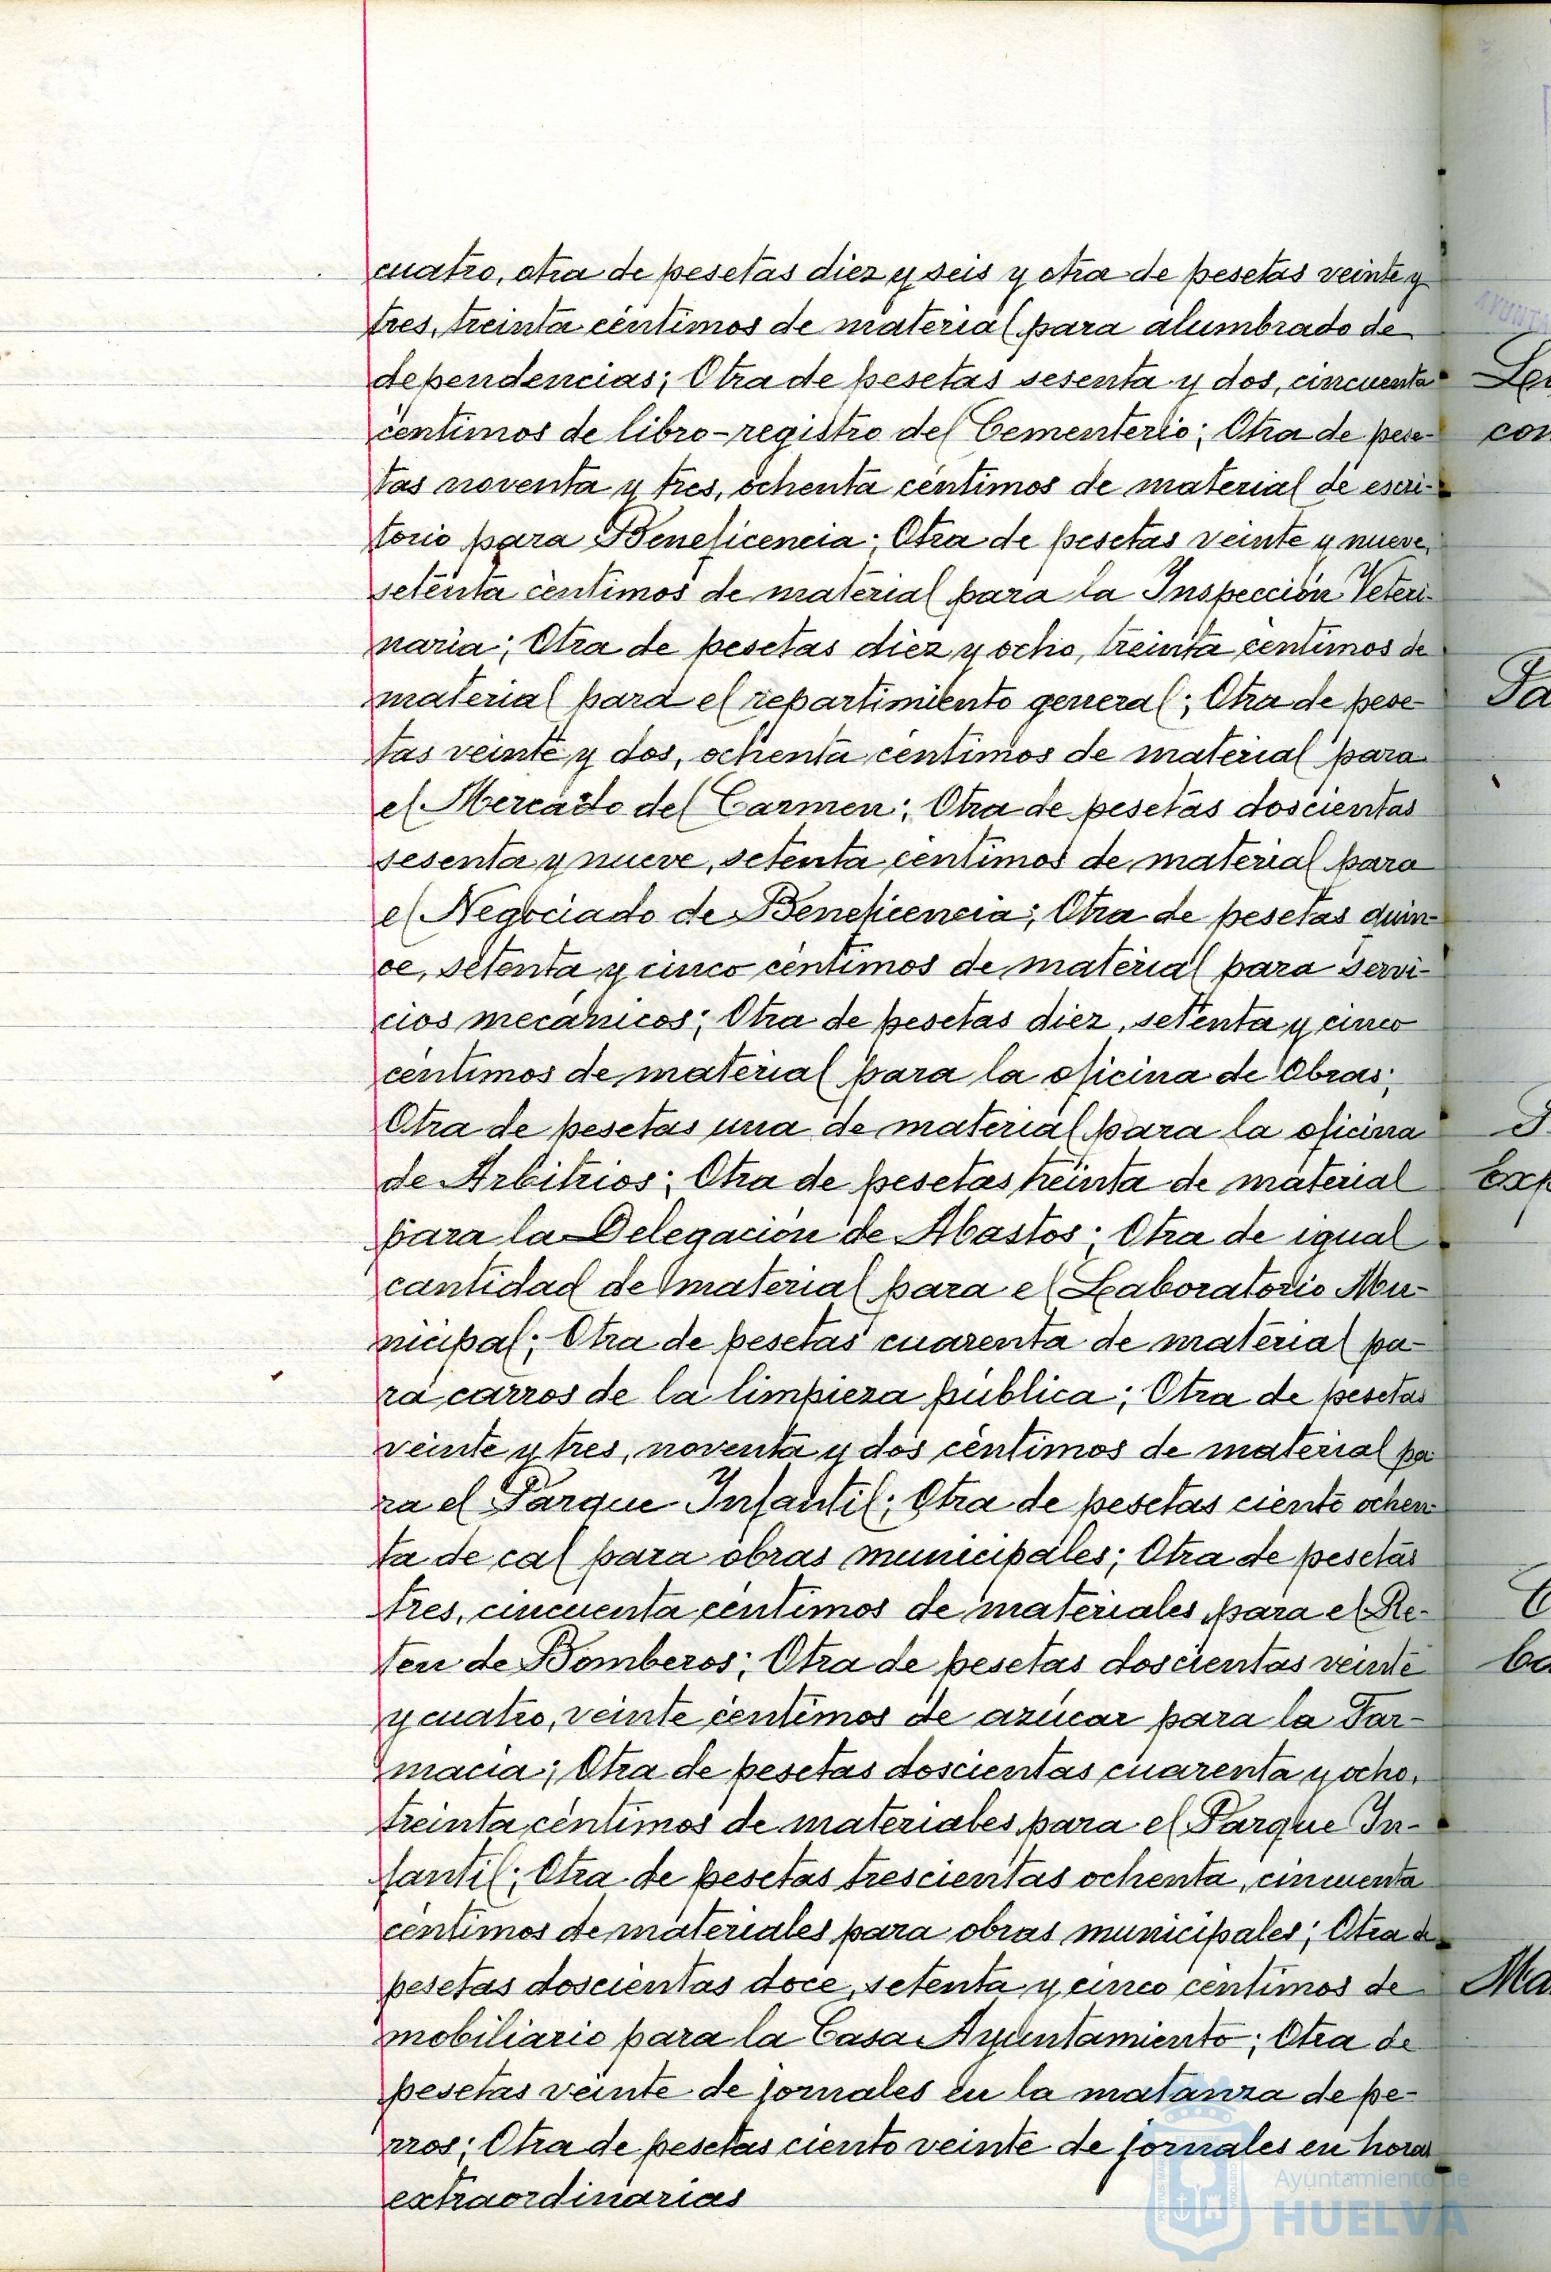 cuatro, otra de pesetas diez y seis y otra de pesetas veinte y
tres, treinta céntimos de material para alumbrado de
dependencias; Otra de pesetas sesenta y dos, cincuenta
céntimos de libro-registro del Cementerio; Otra de pese-
tas noventa y tres, ochenta céntimos de material de escri-
torio para Beneficencia; Otra de pesetas veinte y nueve,
setenta céntimos de material para la Inspección Veteri-
naria; Otra de pesetas diez y ocho, treinta céntimos de
material para el repartimiento general; Otra de pese-
tas veinte y dos, ochenta céntimos de material para
el Mercado del Carmen; Otra de pesetas doscientas
sesenta y nueve, setenta céntimos de material para
el Negociado de Beneficencia; Otra de pesetas quin-
ce, setenta y cinco céntimos de material para servi-
cios mecánicos; Otra de pesetas diez, setenta y cinco
céntimos de material para la oficina de Obras;
Otra de pesetas una de material para la oficina
de Arbitrios; Otra de pesetas treinta de material
para la Delegación de Abastos; Otra de igual
cantidad de material para el Laboratorio Mu-
nicipal; Otra de pesetas cuarenta de material pa-
ra carros de la limpieza pública; Otra de pesetas
veinte y tres, noventa y dos céntimos de material pa
ra el Parque Infantil; Otra de pesetas ciento ochen-
ta de cal para obras municipales; Otra de pesetas
tres, cincuenta céntimos de materiales para el Re-
ten de Bomberos; Otra de pesetas doscientas veinte
y cuatro, veinte céntimos de azúcar para la Far-
macia; Otra de pesetas doscientas cuarenta y ocho,
treinta céntimos de materiales para el Parque In-
fantil; Otra de pesetas trescientas ochenta, cincuenta
céntimos de materiales para obras municipales; Otra de
pesetas doscientas doce, setenta y cinco céntimos de
mobiliario para la Casa Ayuntamiento; Otra de
pesetas veinte de jornales en la matanza de pe-
rros; Otra de pesetas ciento veinte de jornales en horas
extraordinarias
Ayuntamiento de
HUELVA